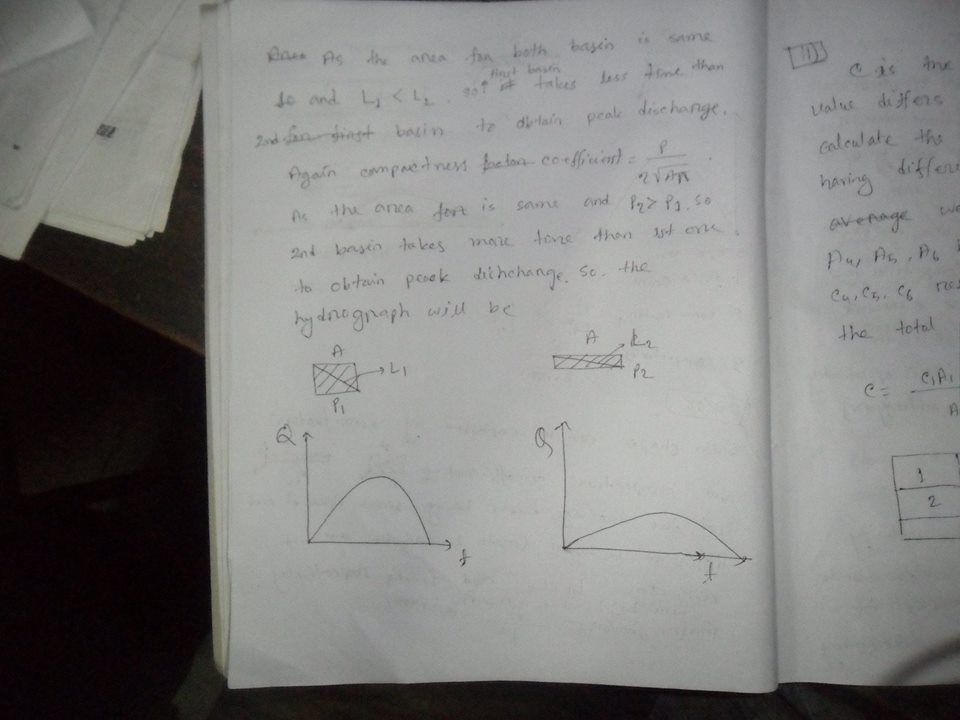 As the area for both basin is same
so and L1 < L2. so first basin takes less time than
2nd basin to obtain peak discharge.
Again compactness coefficient = P / 2√Aπ.
As the area for is same and P2 > P1, so
2nd basin takes more time than 1st one.
to obtain peak dishchange. so. the
hydrograph will be
A
L1
P1
A
L2
P2
Q
t
Q
t
11)
C is the
value differs
calculate the
having
average
A4, A5, A6
C4, C5, C6
the total
C = C1A1
A
1
2